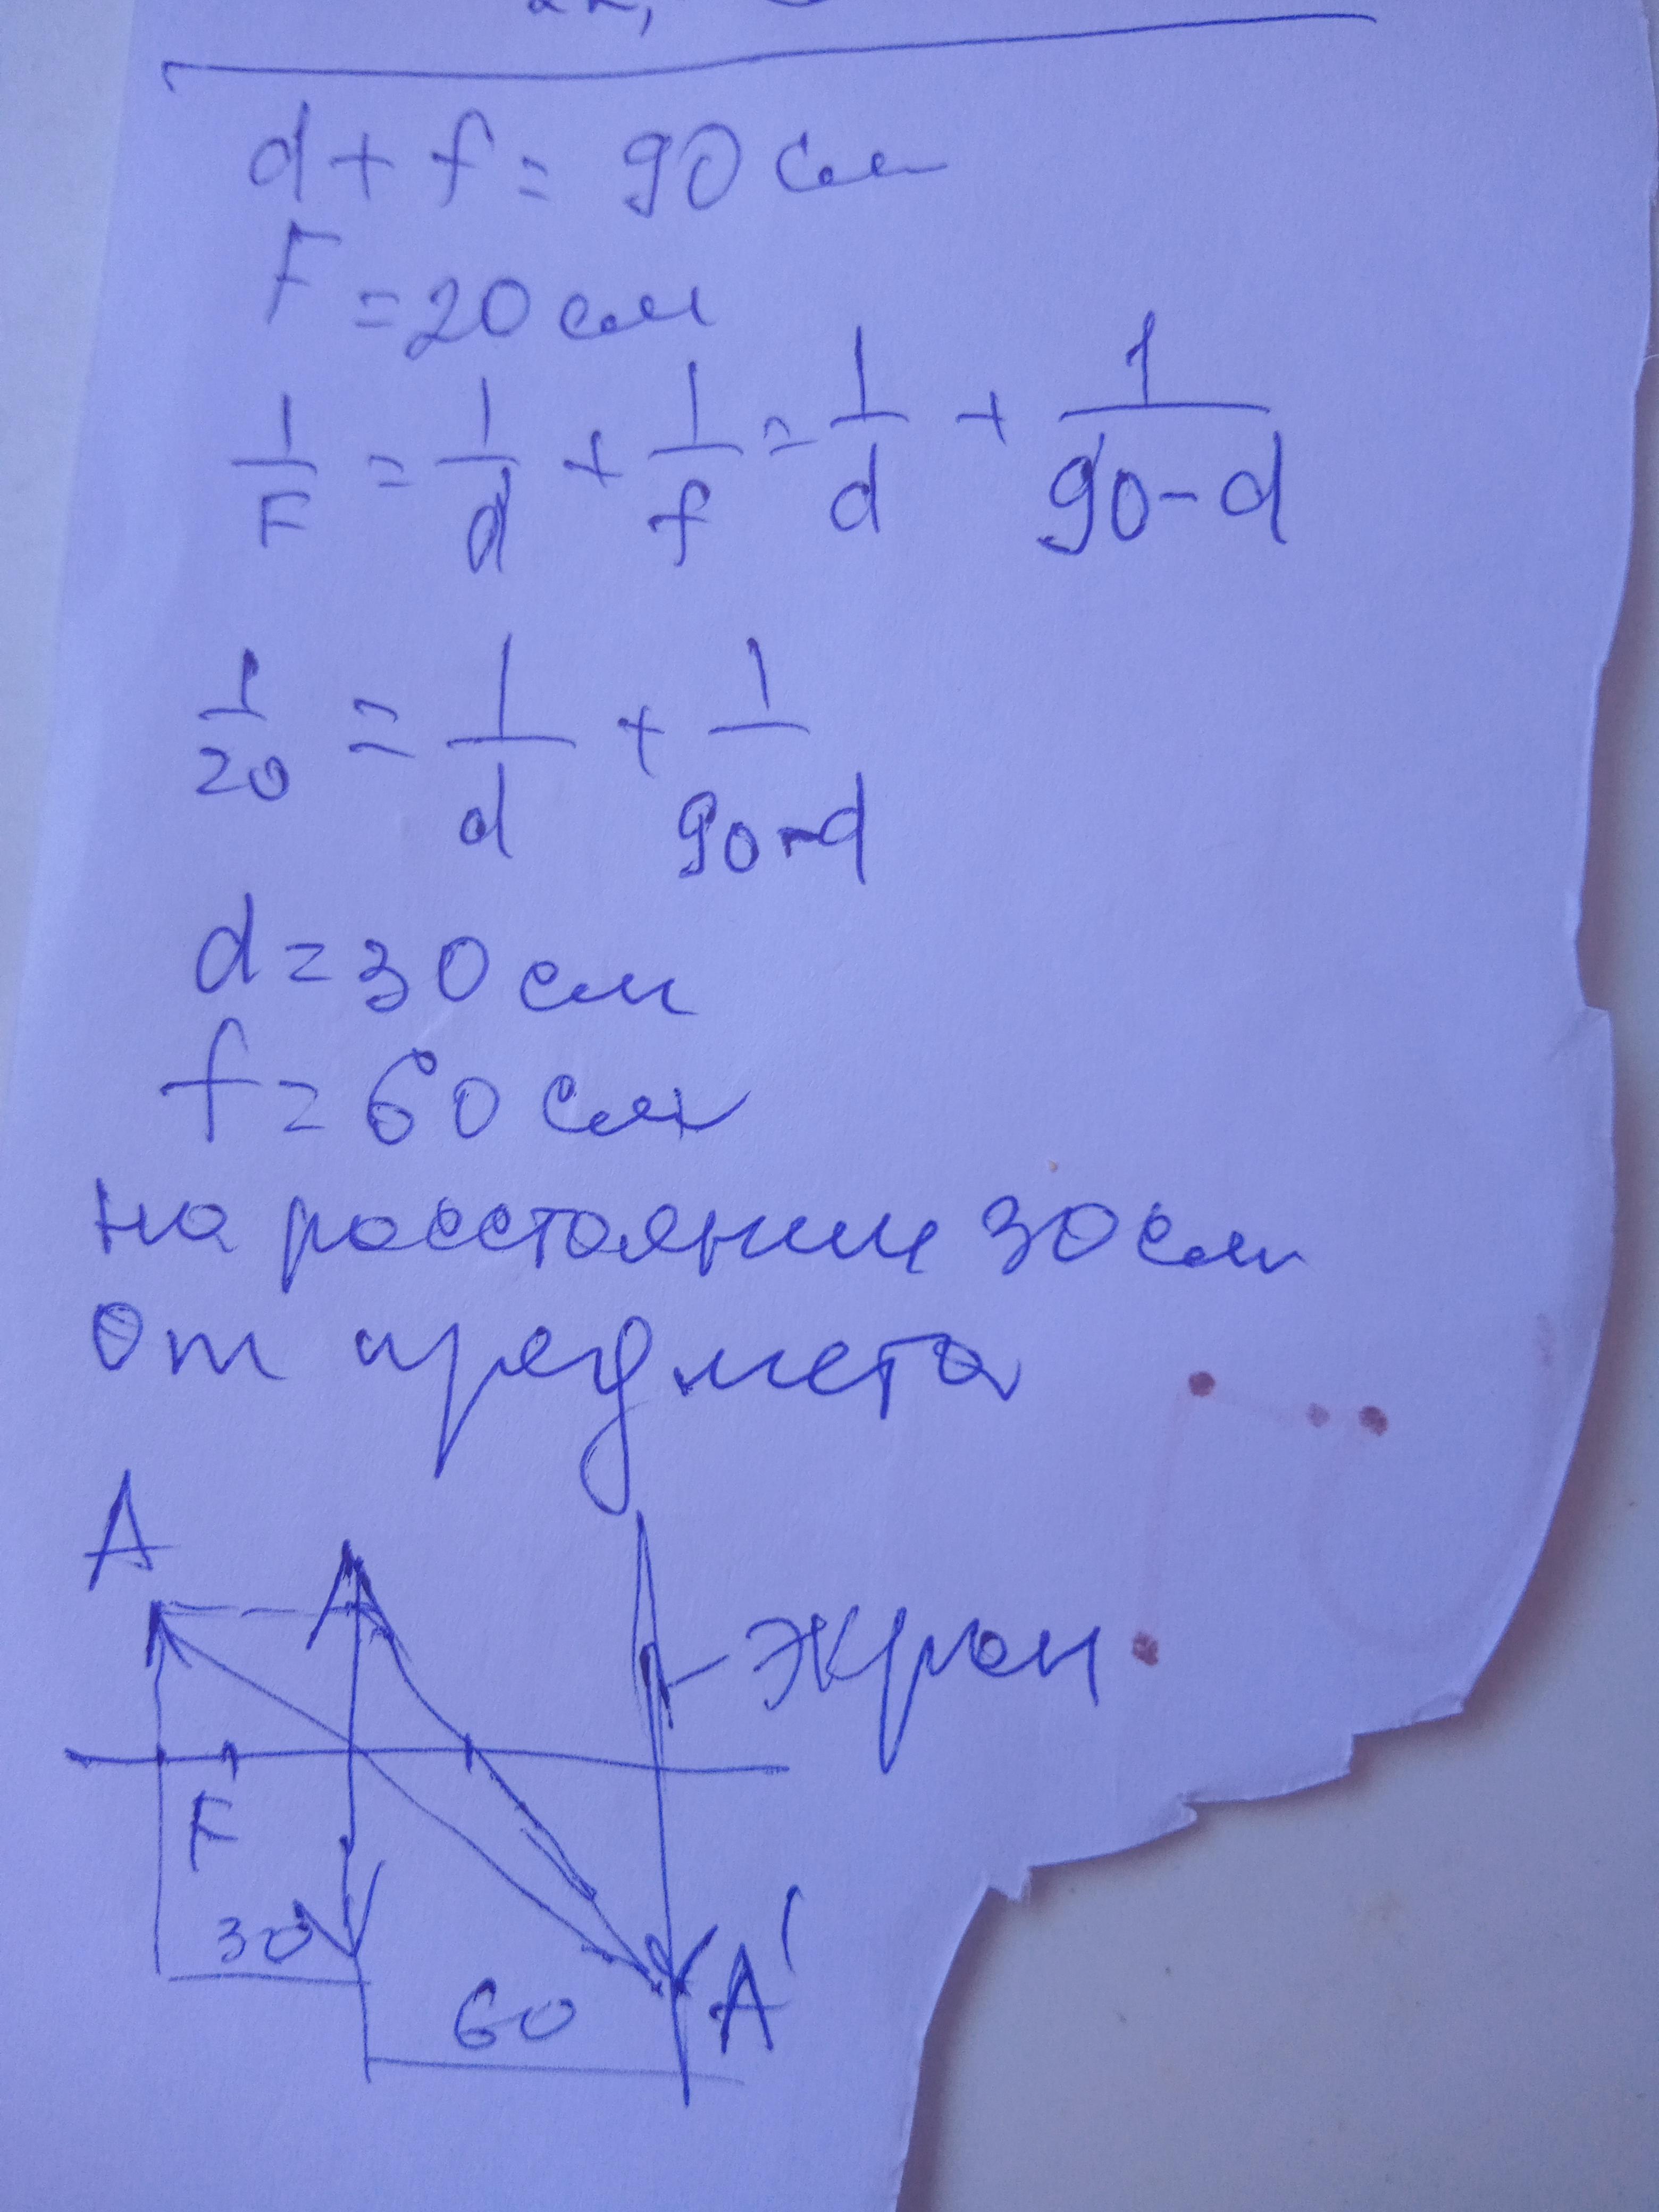 d + f = 90 см
F = 20 см
1/F = 1/d + 1/f = 1/d + 1/(90-d)
1/20 = 1/d + 1/(90-d)
d = 30 см
f = 60 см
на расстоянии 30 см
от предмета
A
экран
F
30
60
A'